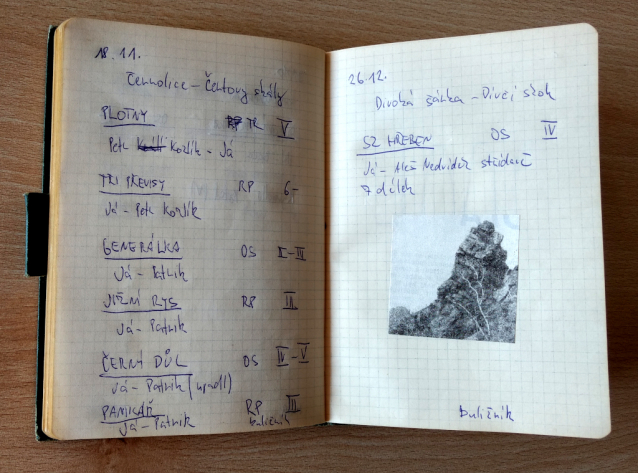 18.11.
Černolice - Čertovy skály
PLOTNY TR V
Petr Kozlík - Já
TŘI PŘEVISY RP 6-
Já - Petr Kozlík
GENERÁLKA OS II-III
Já - Patrik
JIŽNÍ RYS RP III
Já - Patrik
ČERNÝ DŮL OS IV-V
Já - Patrik
PANICKÁŘ RP III
Já - Patrik buližník
26.12.
Divoká šárka - Dívčí skok
SZ HŘEBEN OS IV
Já - Aleš Medvídek střídavě
7 délek
buližník